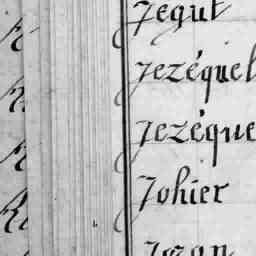 Jégut
Jézéquel
Jézéque
Johier
Jean